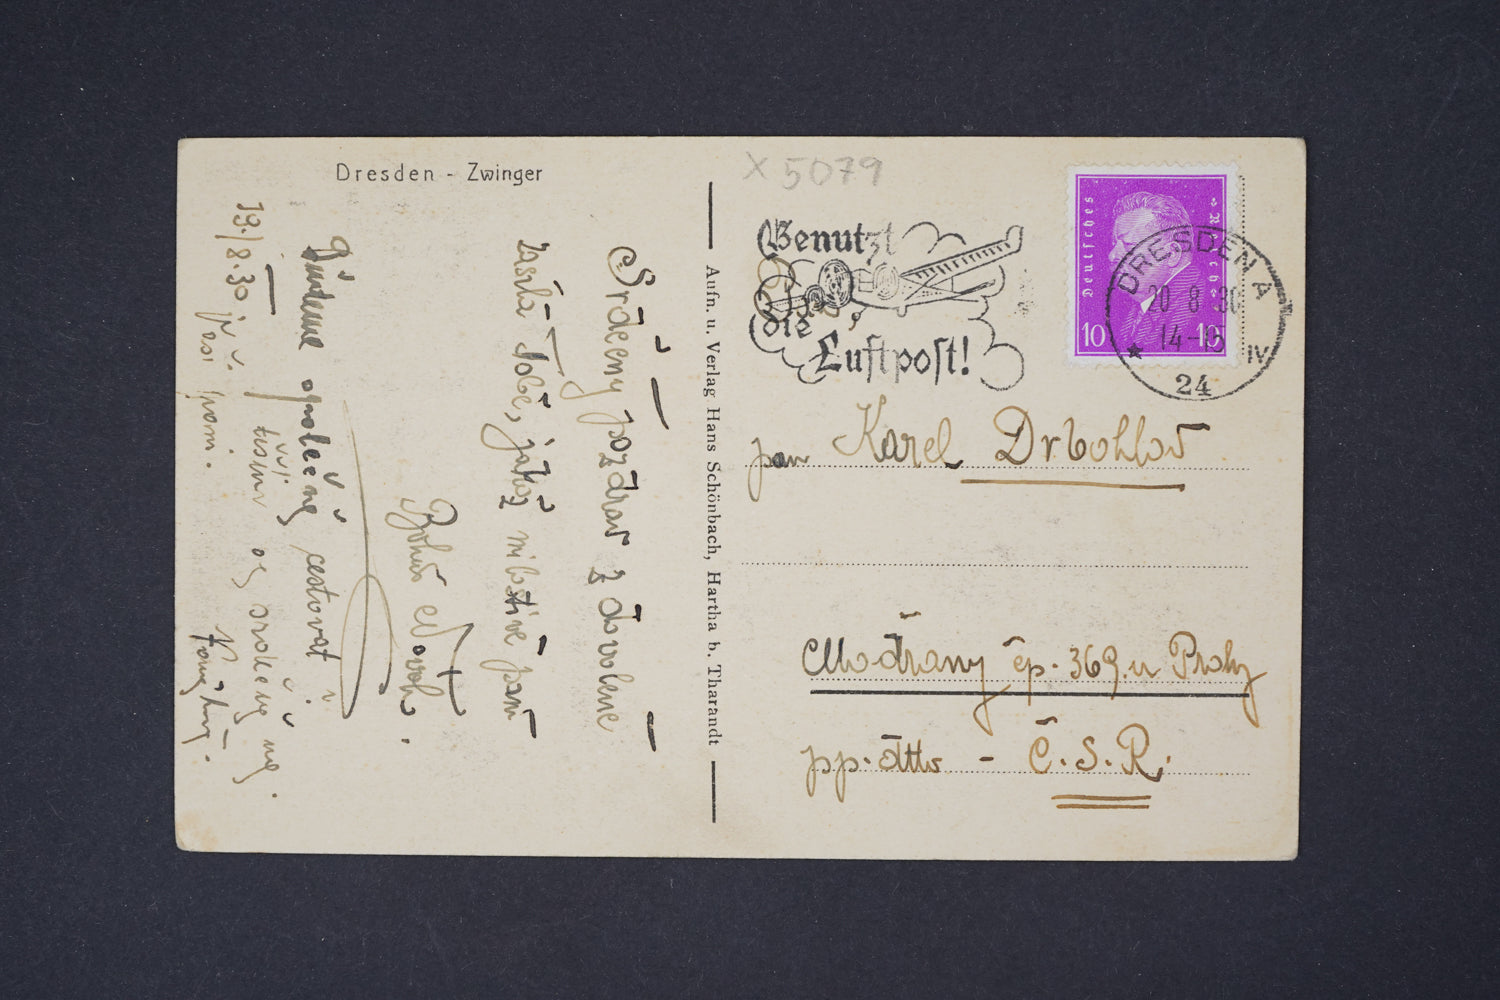 Dresden - Zwinger
Srdečný pozdrav z dovolené
zasílá Tobě, jakož i milostivé paní
Bohuš Novák.
Budeme společně cestovat i
těším se
19./8.30
Aufn. u. Verlag Hans Schönbach, Hartha b. Tharandt
X 5079
Benutzt
die
Luftpost!
Deutsches
10 10
DRESDEN A
20 8 30
14-15
IV
24
pan Karel Drbohlav
Modřany čp. 369. u Prahy
pp. dtto - Č.S.R.